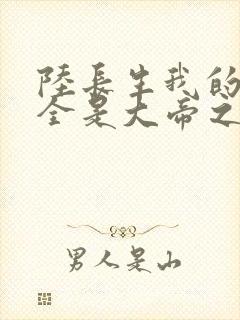 陸長生我的
全是大帝之
男人是山